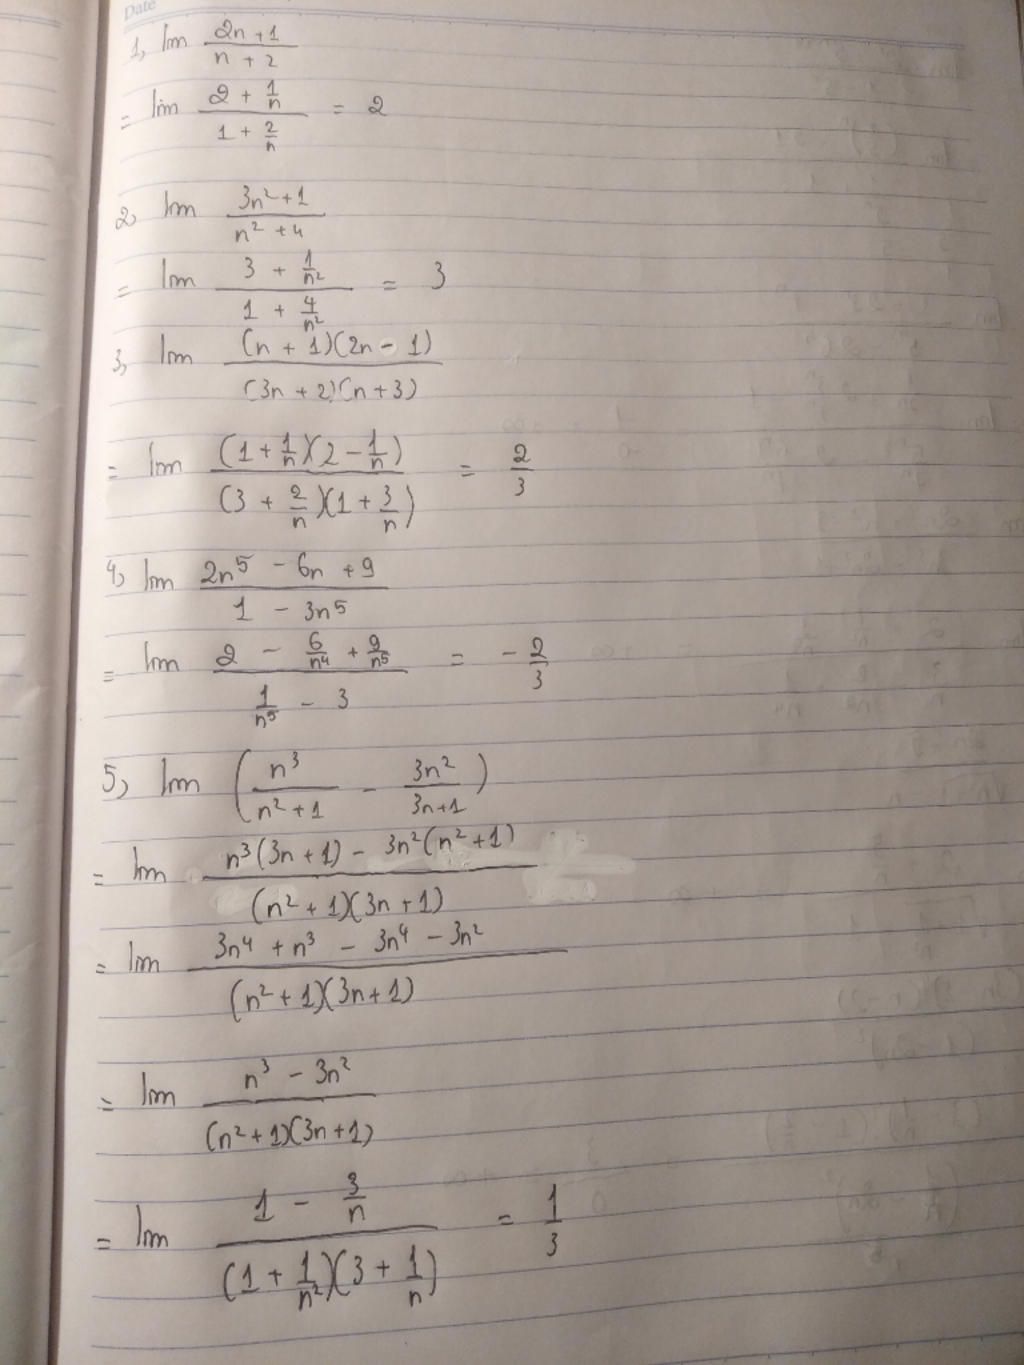 Date
1, lim (2n + 1)/(n + 2)
= lim (2 + 1/n)/(1 + 2/n) = 2
2, lim (3n² + 1)/(n² + 4)
= lim (3 + 1/n²)/(1 + 4/n²) = 3
3, lim ((n + 1)(2n - 1))/((3n + 2)(n + 3))
= lim ((1 + 1/n)(2 - 1/n))/((3 + 2/n)(1 + 3/n)) = 2/3
4, lim (2n⁵ - 6n + 9)/(1 - 3n⁵)
= lim (2 - 6/n⁴ + 9/n⁵)/(1/n⁵ - 3) = -2/3
5, lim (n³/(n² + 1) - 3n²/(3n + 1))
= lim (n³(3n + 1) - 3n²(n² + 1))/((n² + 1)(3n + 1))
= lim (3n⁴ + n³ - 3n⁴ - 3n²)/((n² + 1)(3n + 1))
= lim (n³ - 3n²)/((n² + 1)(3n + 1))
= lim (1 - 3/n)/((1 + 1/n²)(3 + 1/n)) = 1/3